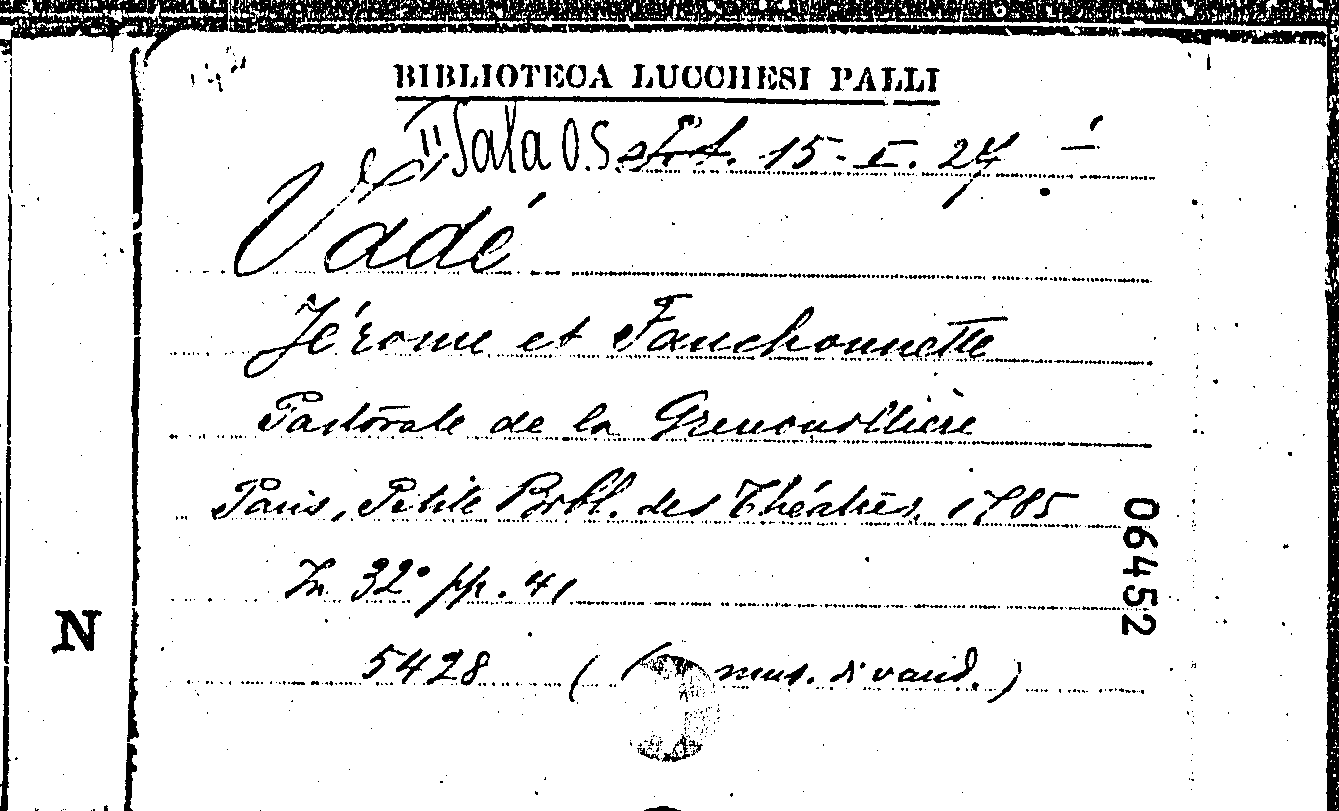 BIBLIOTECA LUCCHESI PALLI
II Sala O.S. 15-I. 27
Vadé
Jérome et Fanchonnette
Pastorale de la Grenouillière
Paris, Petite Bibl. des Théatres, 1785
In 32° pp. 41
5428 ( mus. di vaud.)
06452
N